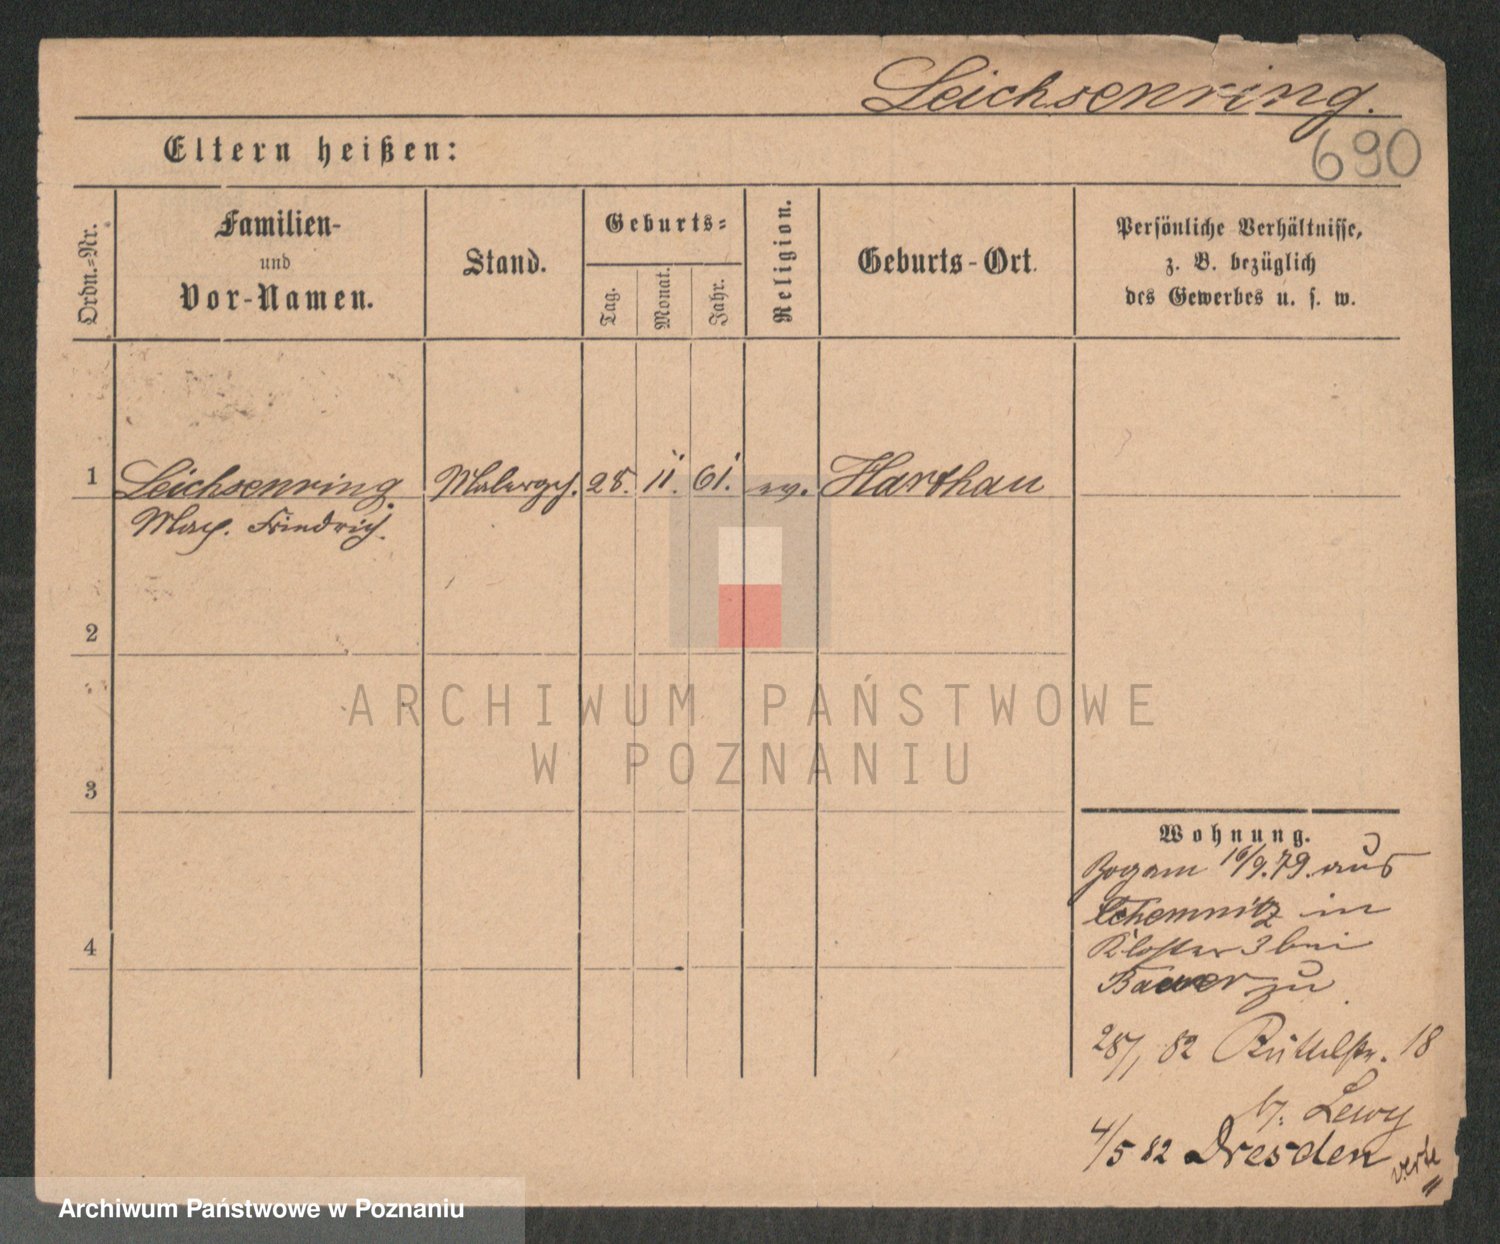 Leichsenring.
690
Eltern heißen:
Ordn.=Nr.
Familien-
und
Vor-Namen.
Stand.
Geburts=
Tag.
Monat.
Jahr.
Religion.
Geburts-Ort.
Persönliche Verhältnisse,
z. B. bezüglich
des Gewerbes u. s. w.
1 Leichsenring Malergeh. 28. 11. 61. ev. Harthau
Max. Friedrich.
2
ARCHIWUM PAŃSTWOWE
W POZNANIU
3
Wohnung.
16/9.79. aus
Chemnitz in
Kloster 3 bei
Bauer zu
28/1 82 Büttelstr. 18
b. Lewy
4/5 82 Dresden
verte
4
Archiwum Państwowe w Poznaniu